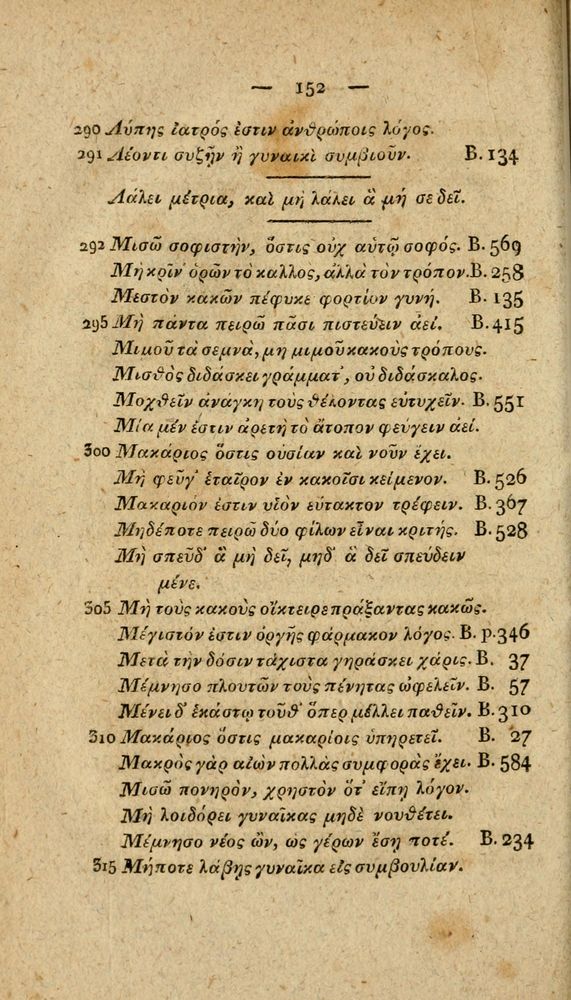 — 152 —
290 Λύπης ἰατρός ἐστιν ἀνθρώποις λόγος.
291 Λέοντι συζῆν ἢ γυναικὶ συμβιοῦν. B. 134
Λάλει μέτρια, καὶ μὴ λάλει ἃ μή σε δεῖ.
292 Μισῶ σοφιστὴν, ὅστις οὐχ αὑτῷ σοφός. B. 569
Μὴ κρῖν' ὁρῶν τὸ καλλος, ἀλλὰ τὸν τρόπον. B. 258
Μεστὸν κακῶν πέφυκε φορτίον γυνή. B. 135
295 Μὴ πάντα πειρῶ πᾶσι πιστεύειν ἀεί. B. 415
Μιμοῦ τὰ σεμνὰ, μη μιμοῦ κακοὺς τρόπους.
Μισθὸς διδάσκει γράμματ', οὐ διδάσκαλος.
Μοχθεῖν ἀνάγκη τοὺς θέλοντας εὐτυχεῖν. B. 551
Μία μέν ἐστιν ἀρετὴ τὸ ἄτοπον φεύγειν ἀεί.
300 Μακάριος ὅστις οὐσίαν καὶ νοῦν ἔχει.
Μὴ φεῦγ' ἑταῖρον ἐν κακοῖσι κείμενον. B. 526
Μακαριόν ἐστιν υἱὸν εὔτακτον τρέφειν. B. 367
Μηδέποτε πειρῶ δύο φίλων εἶναι κριτής. B. 528
Μὴ σπεῦδ' ἃ μὴ δεῖ, μηδ' ἃ δεῖ σπεύδειν
μένε.
305 Μὴ τοὺς κακοὺς οἴκτειρε πράξαντας κακῶς.
Μέγιστόν ἐστιν ὀργῆς φάρμακον λόγος. B. p. 346
Μετὰ τὴν δόσιν τάχιστα γηράσκει χάρις. B. 37
Μέμνησο πλουτῶν τοὺς πένητας ὠφελεῖν. B. 57
Μένει δ' ἑκάστῳ τοῦθ' ὅπερ μέλλει παθεῖν. B. 310
310 Μακάριος ὅστις μακαρίοις ὑπηρετεῖ. B. 27
Μακρὸς γὰρ αἰὼν πολλὰς συμφορὰς ἔχει. B. 584
Μισῶ πονηρὸν, χρηστὸν ὅτ' εἴπῃ λόγον.
Μὴ λοιδόρει γυναῖκας μηδὲ νουθέτει.
Μέμνησο νέος ὢν, ὡς γέρων ἔσῃ ποτέ. B. 234
315 Μήποτε λάβῃς γυναῖκα εἰς συμβουλίαν.